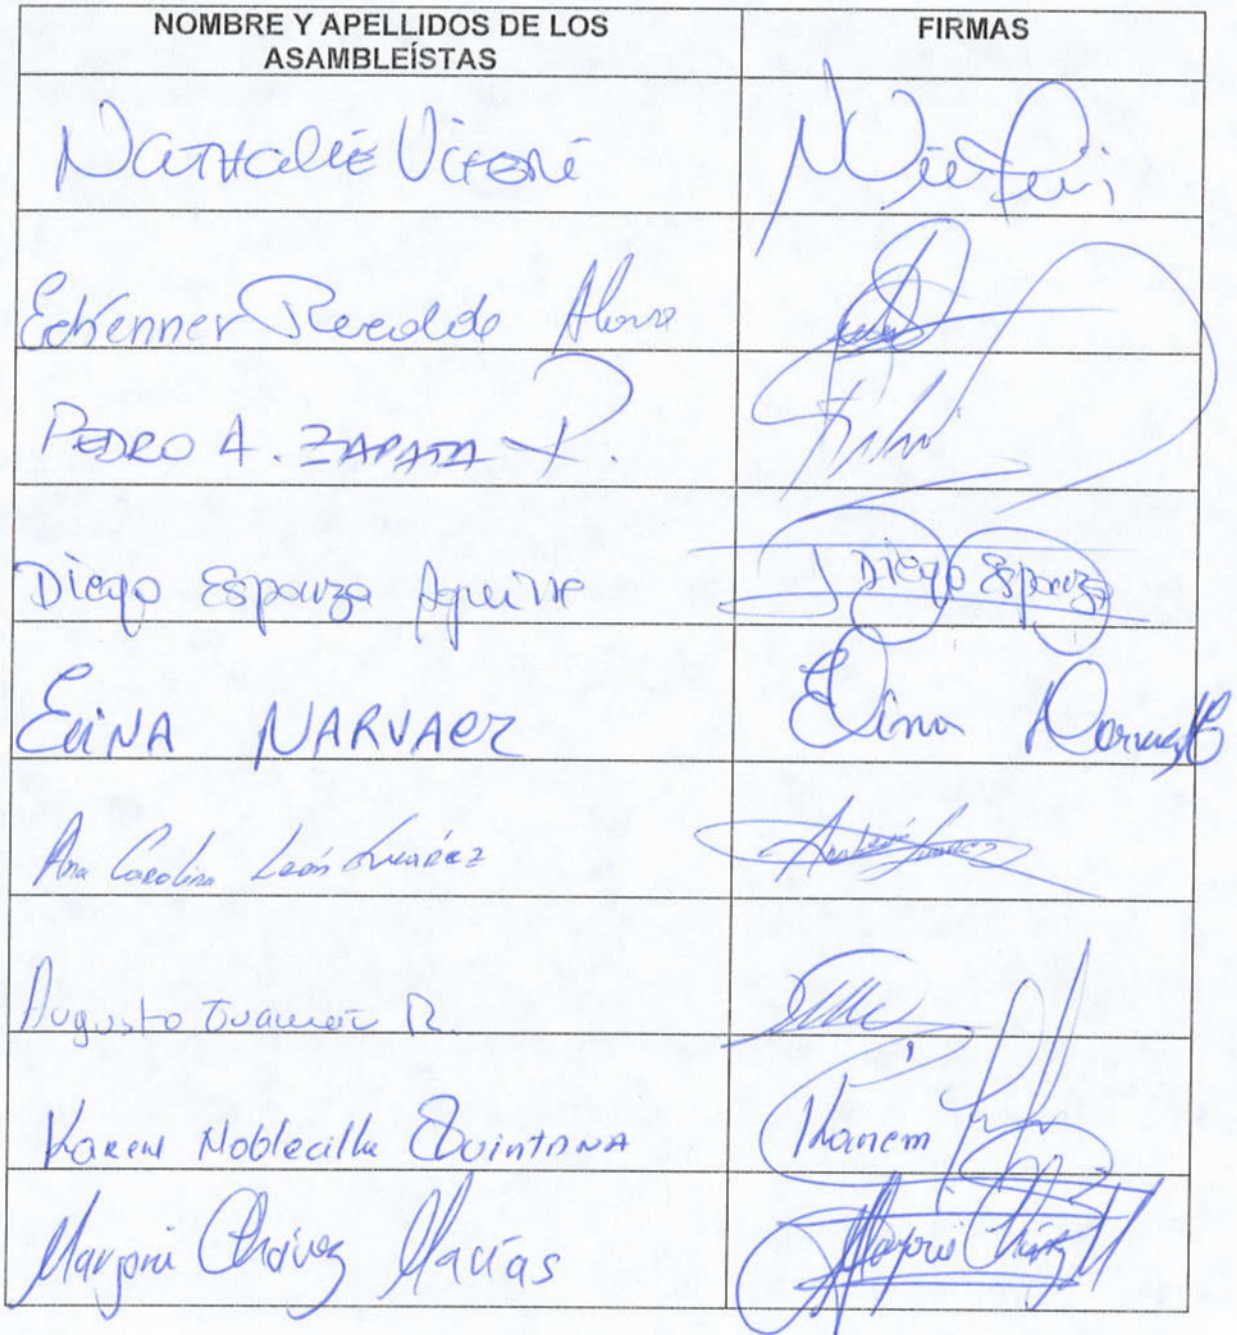 NOMBRE Y APELLIDOS DE LOS ASAMBLEÍSTAS
FIRMAS
Nathalie Viteri
Eckenner Recalde Alava
PEDRO A. ZAPATA R.
Diego Esparza Aguirre
Diego Esparza
ELINA NARVAEZ
Elina Narvaez
Ana Carolina León
Augusto Guamán R.
Karem Noblecilla QuintaNA
Karem
Marjorie Chávez Macías
Marjorie Chávez M